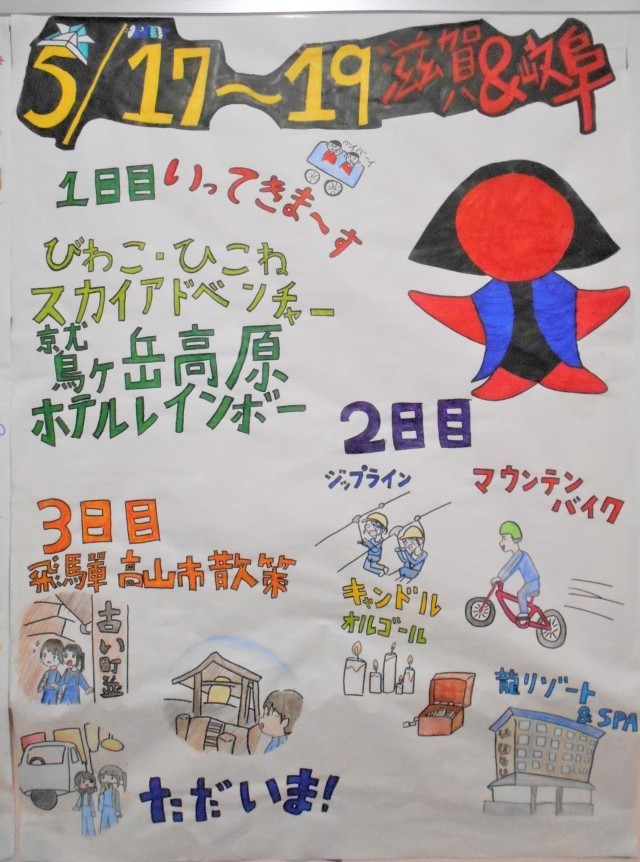 5/17～19 滋賀&岐阜
1日目 いってきま～す
びわこ・ひこね
スカイアドベンチャー
鷲ヶ岳高原
ホテルレインボー
2日目
ジップライン
マウンテン
バイク
キャンドル
オルゴール
龍リゾート
& SPA
3日目
飛驒高山市散策
古い町並
ただいま!